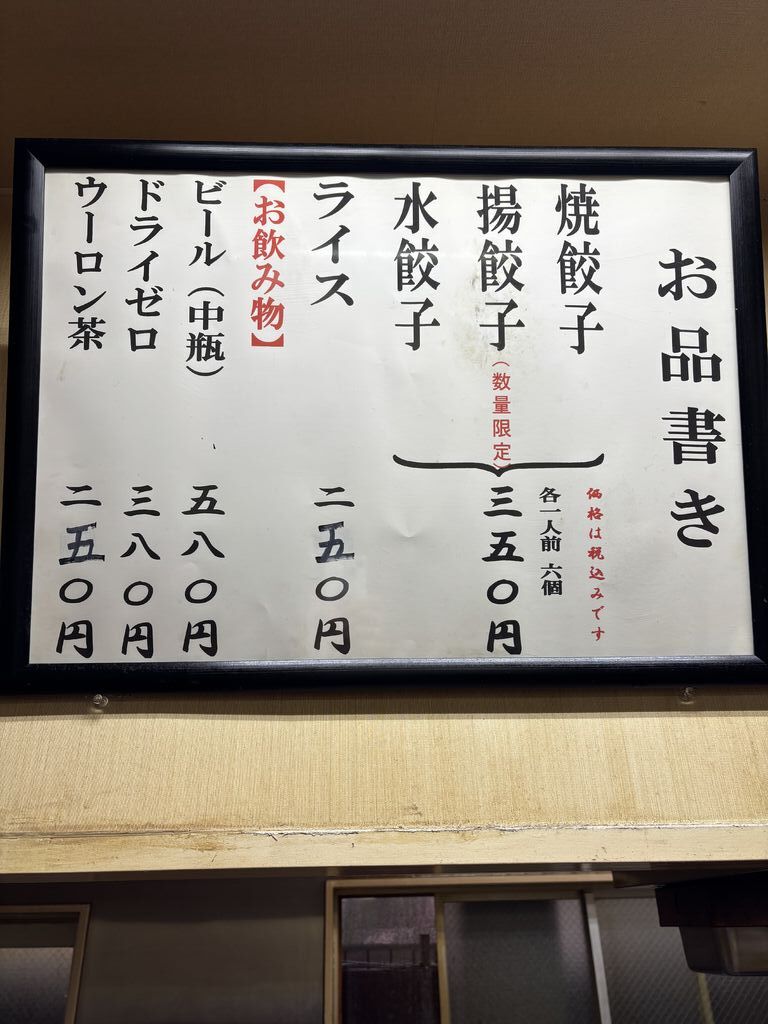 お品書き
価格は税込みです
焼餃子
揚餃子（数量限定）
水餃子
各一人前 六個
三五〇円
ライス 二五〇円
【お飲み物】
ビール（中瓶） 五八〇円
ドライゼロ 三八〇円
ウーロン茶 二五〇円